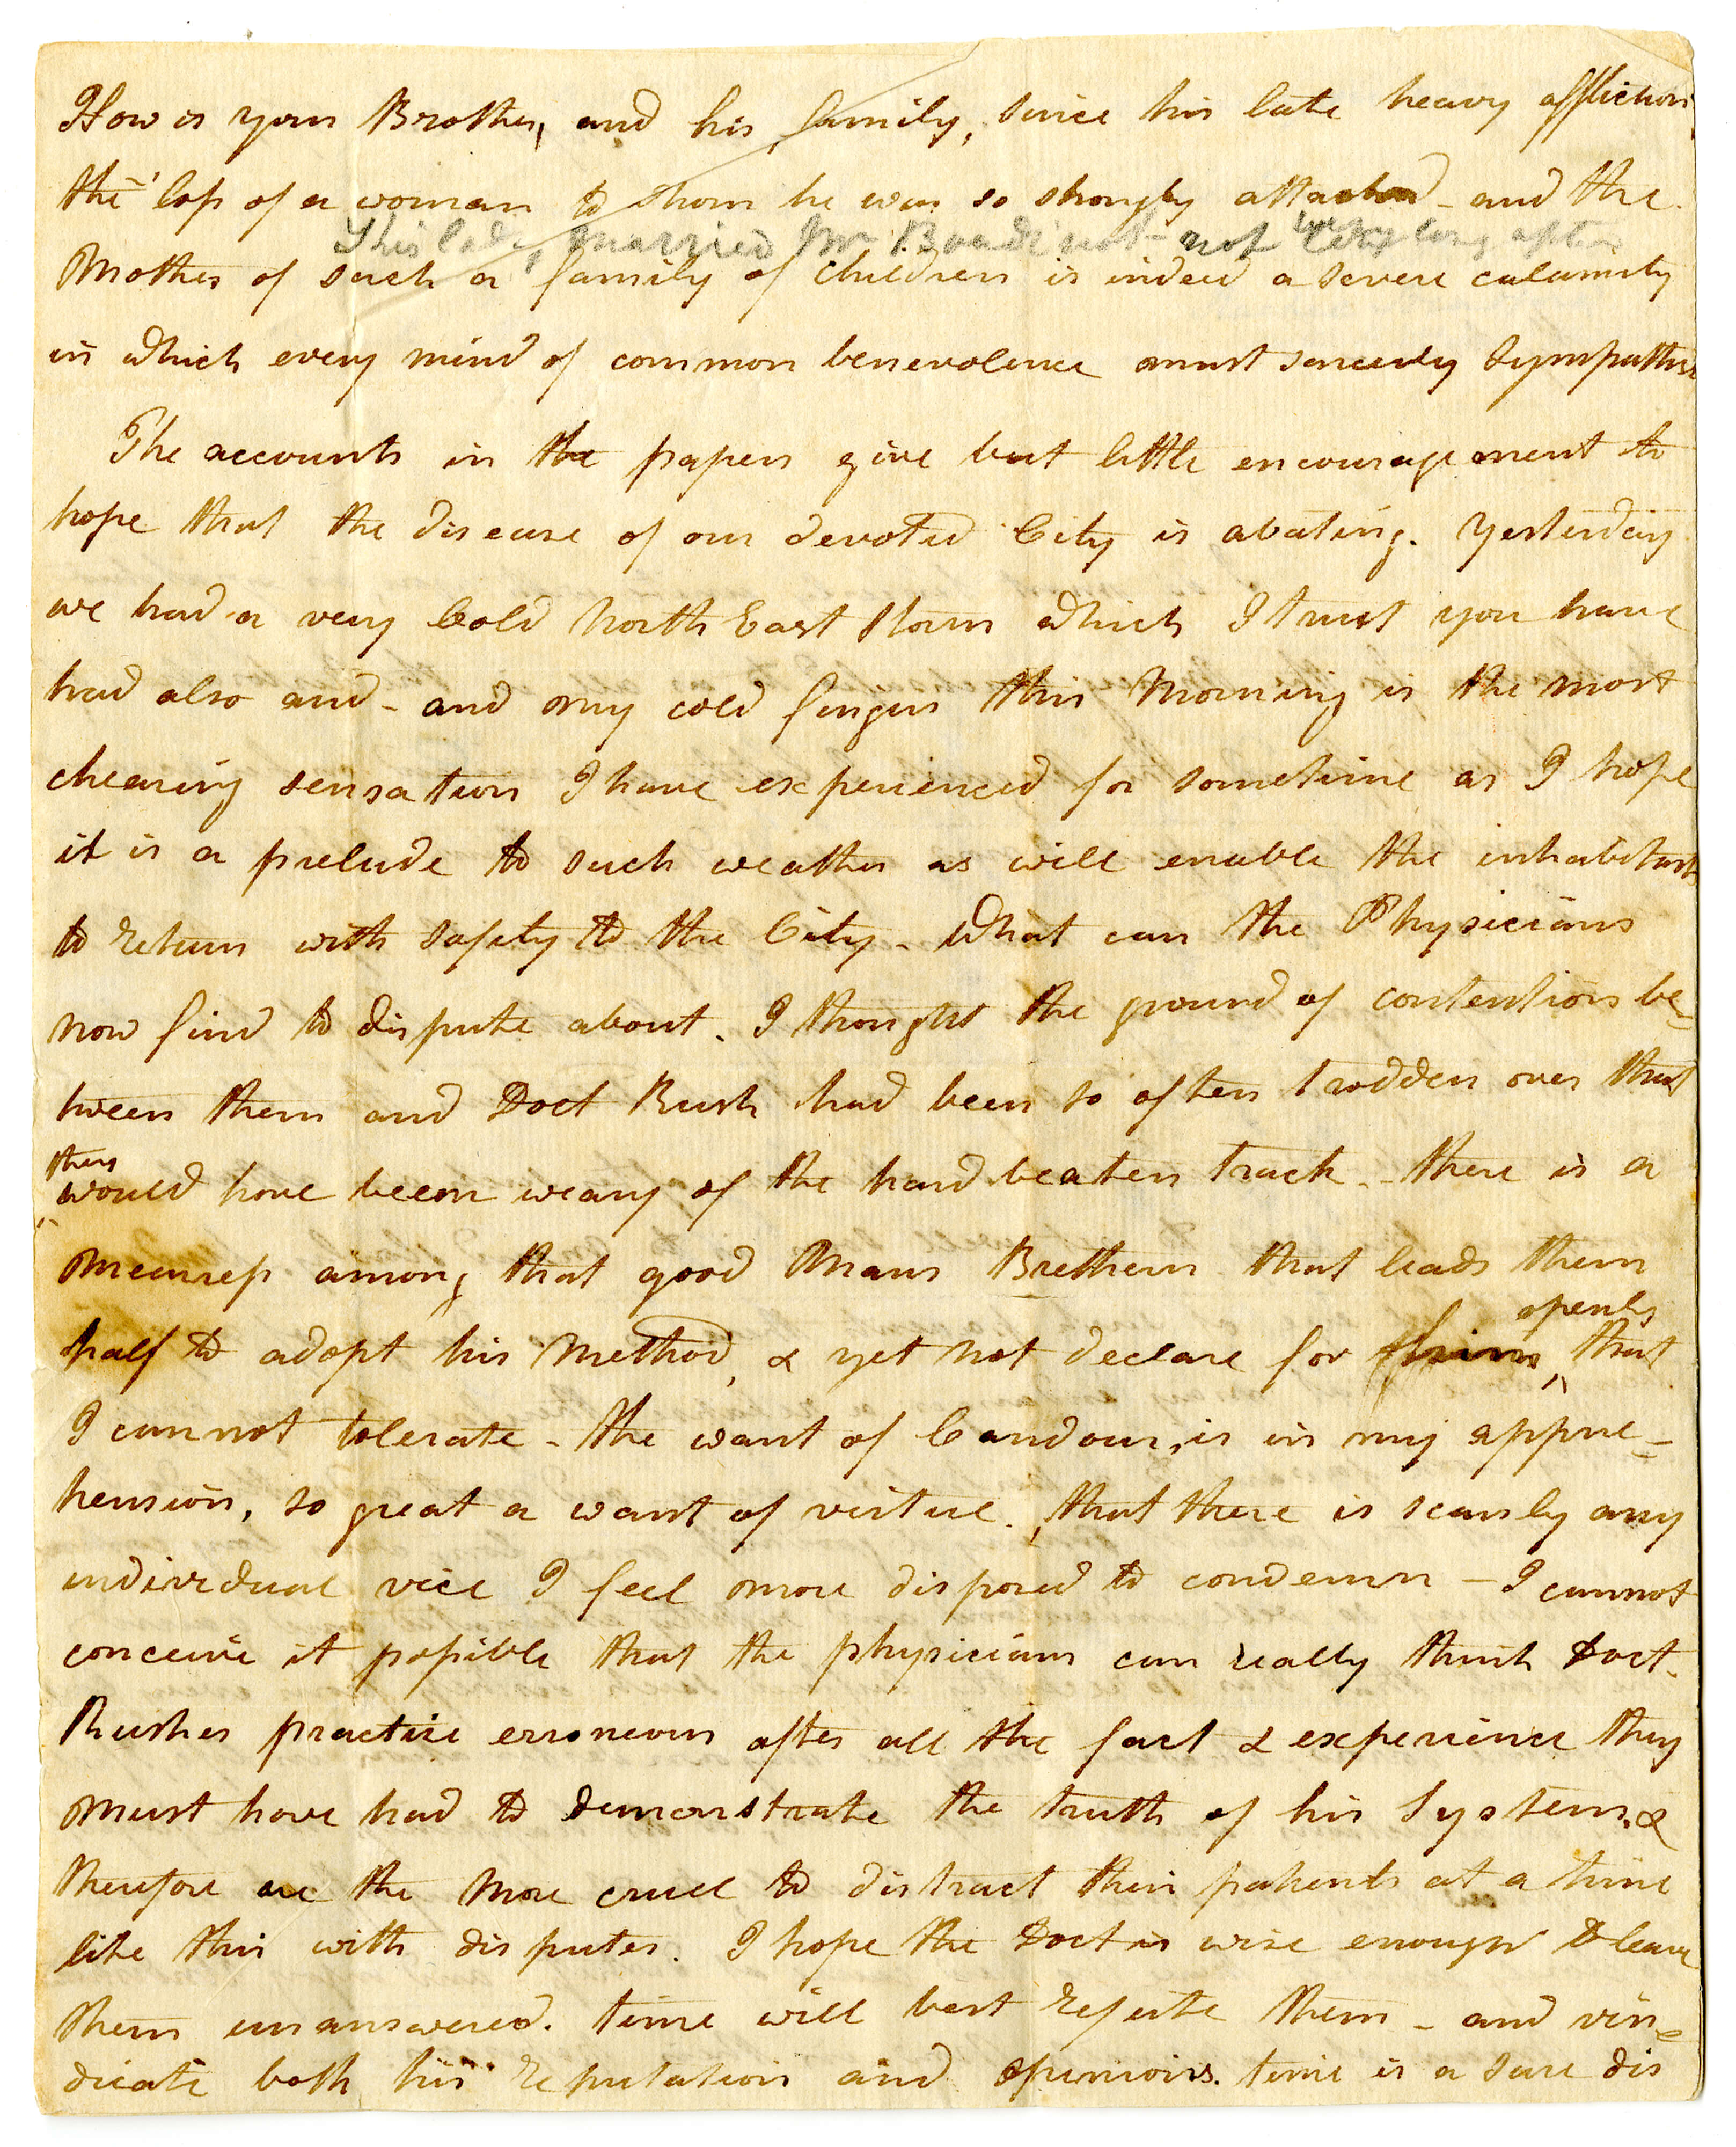 How is your Brother, and his family, since his late heavy affliction,
the loss of a woman to whom he was so strongly attached - and the
This lady married Mr. Boudinot - not very long after
Mother of such a family of children is indeed a severe calamity
in which every mind of common benevolence must sincerely sympathise
The accounts in the papers give but little encouragement to
hope that the disease of our devoted City is abating. Yesterday
we had a very Cold North East storm which I trust you have
had also and - and my cold fingers this Morning is the most
chearing sensation I have experienced for sometime as I hope
it is a prelude to such weather as will enable the inhabitants
to return with safety to the City - What can the Physicians
now find to dispute about. I thought the ground of contention be-
tween them and Doct Rush had been so often trodden over that
they
would have been weary of the hard beaten track. - there is a
Meanness among that good Mans Brethern that leads them
openly
half to adopt his Method, & yet not declare for him, that
I cannot tolerate - the want of Candour, is in my appre-
hension, so great a want of virtue, that there is scarsly any
individual vice I feel more disposed to condemn - I cannot
conceive it possible that the physicians can really think Doct.
Rushes practice erroneous after all the fact & experience they
must have had to demonstrate the truth of his System, &
therefore are the more cruel to distract their patients at a time
like this with disputes. I hope the Doct is wise enough to leave
them unanswered. time will best refute them - and vin-
dicate both his reputation and opinions. time is a sure dis